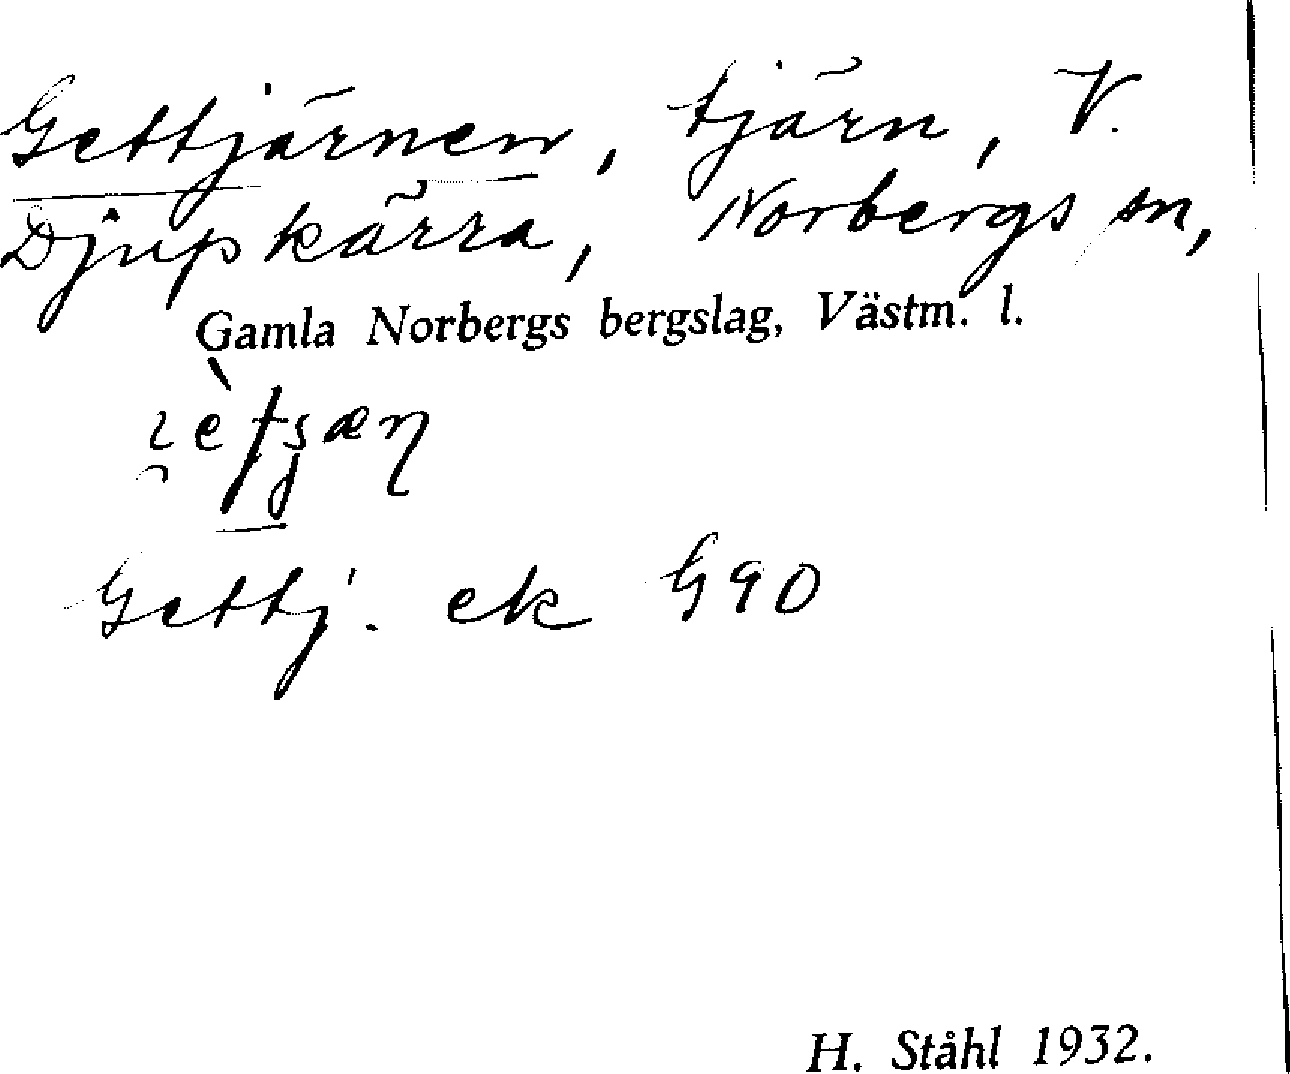 Gettjärnen, tjärn, V.
Djupkärra, Norbergs sn,
Gamla Norbergs bergslag, Västm. l.
Gettj. ek G90
H. Ståhl 1932.